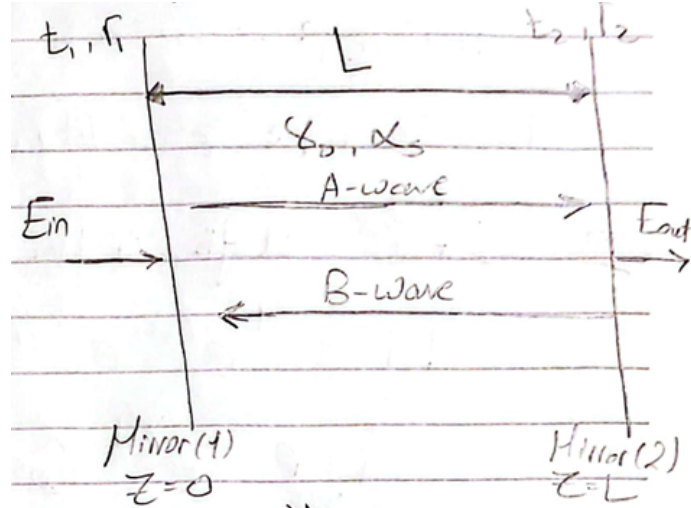 t₁, r₁ L t₂, r₂
γ₀, α₅
A-wave
Ein Eout
B-wave
Mirror(1) Mirror(2)
Z=0 Z=L